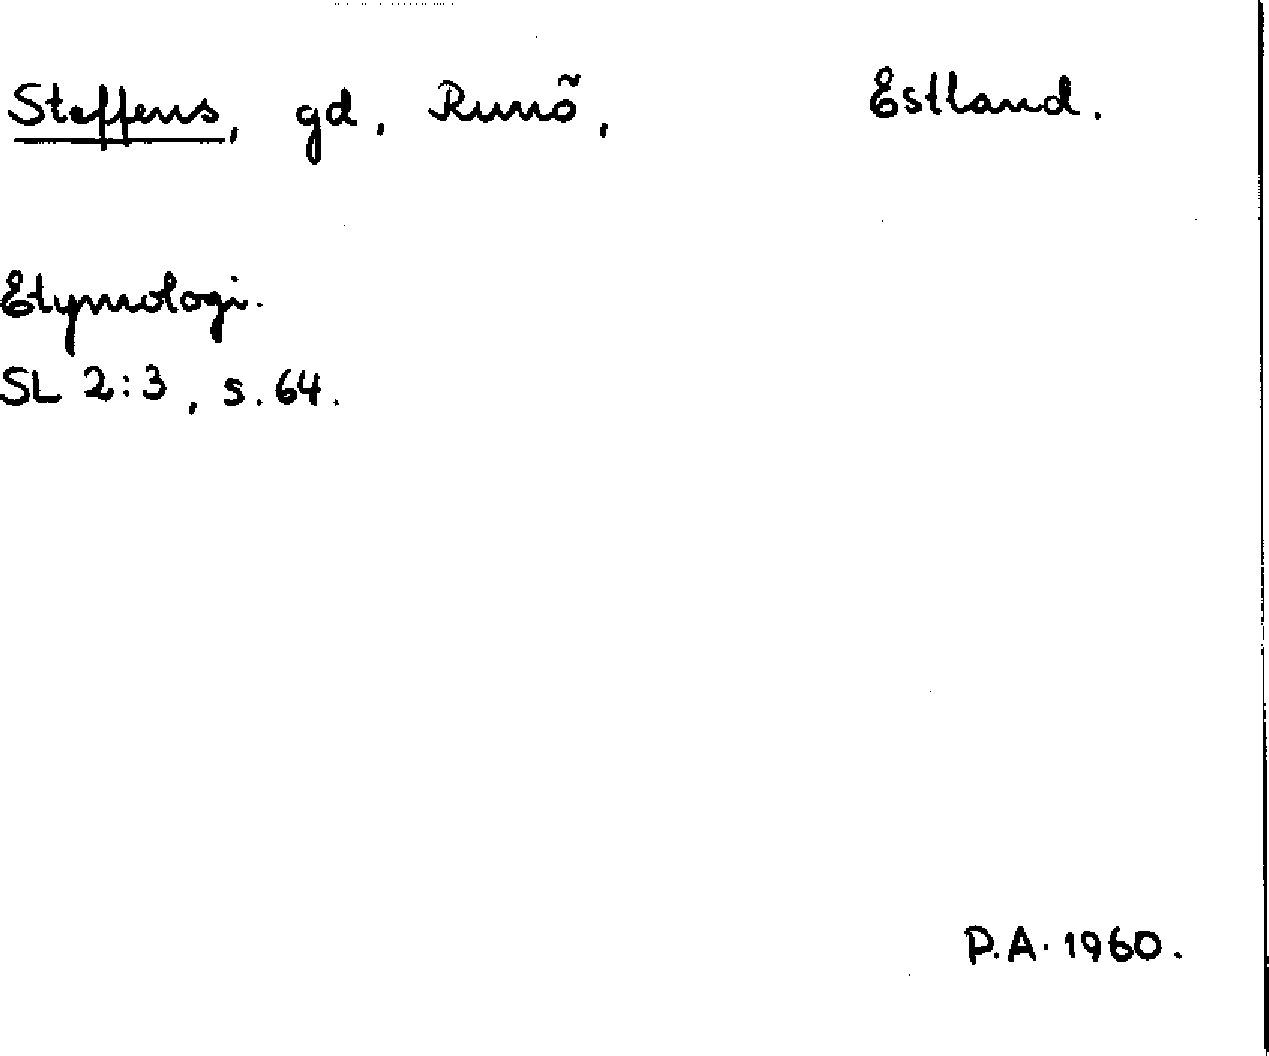 Steffens, gd, Runö, Estland.
Etymologi.
SL 2:3, s. 64.
P.A. 1960.